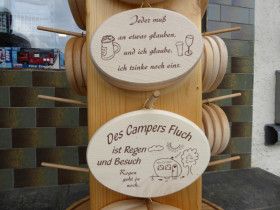 Jeder muß
an etwas glauben,
und ich glaube,
ich trinke noch eins.
Des Campers Fluch
ist Regen
und Besuch
Regen
geht ja
noch..